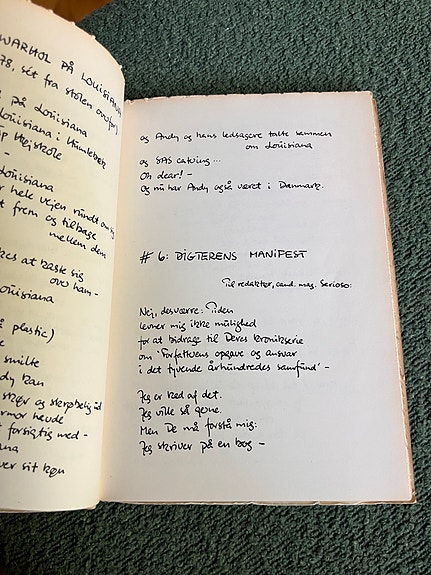 WARHOL PÅ LOUISIANA
78, set fra stolen ovn
på Louisiana
Louisiana i Humlebæk
Højskole
Louisiana
hele vejen rundt om
frem og tilbage
mellem dem
at kaste sig
ovo ham -
Louisiana
på plastic)
smilte
dy kan
skør og skrøbelig ud
heude
forsigtig med -
ana
ver sit køn
og Andy og hans ledsagere talte sammen
om Louisiana
og SAS catering ...
Oh dear! -
Og nu har Andy også været i Danmark.
# 6: DIGTERENS MANIFEST
Til redaktør, cand. mag. Serioso:
Nej, desværre: Tiden
levner mig ikke mulighed
for at bidrage til Deres kronikserie
om 'Forfatterens opgave og ansvar
i det tyvende århundredes samfund' -
Jeg er ked af det.
Jeg ville så gerne.
Men De må forstå mig:
Jeg skriver på en bog -